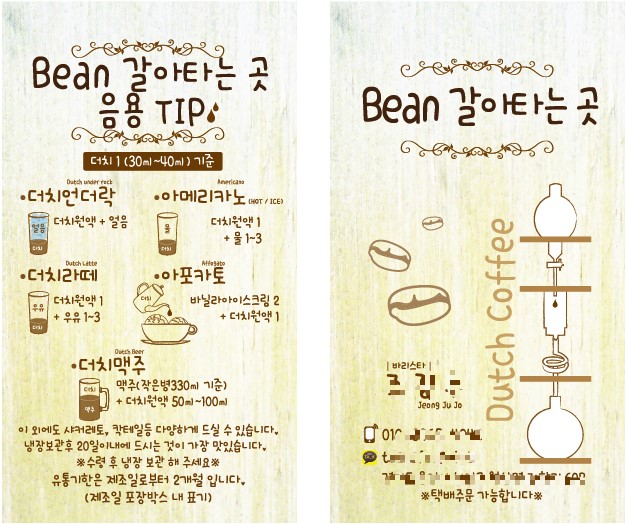 Bean 갈아타는 곳
음용 TIP
더치 1 (30ml~40ml) 기준
Dutch under rock
•더치언더락
얼음
더치
더치원액 + 얼음
Americano
•아메리카노(HOT / ICE)
물
더치
더치원액 1
+ 물 1~3
Dutch Latte
•더치라떼
우유
더치
더치원액 1
+ 우유 1~3
Affogato
•아포카토
더치
바닐라아이스크림 2
+ 더치원액 1
Dutch Beer
•더치맥주
더치
맥주
맥주(작은병330ml 기준)
+ 더치원액 50ml~100ml
이 외에도 샤커레토, 칵테일등 다양하게 드실 수 있습니다.
냉장보관후 20일이내에 드시는 것이 가장 맛있습니다.
※수령 후 냉장 보관 해 주세요※
유통기한은 제조일로부터 2개월 입니다.
(제조일 포장박스 내 표기)
Bean 갈아타는 곳
Dutch Coffee
| 바리스타 |
Jeong Ju Jo
010
※택배주문 가능합니다※